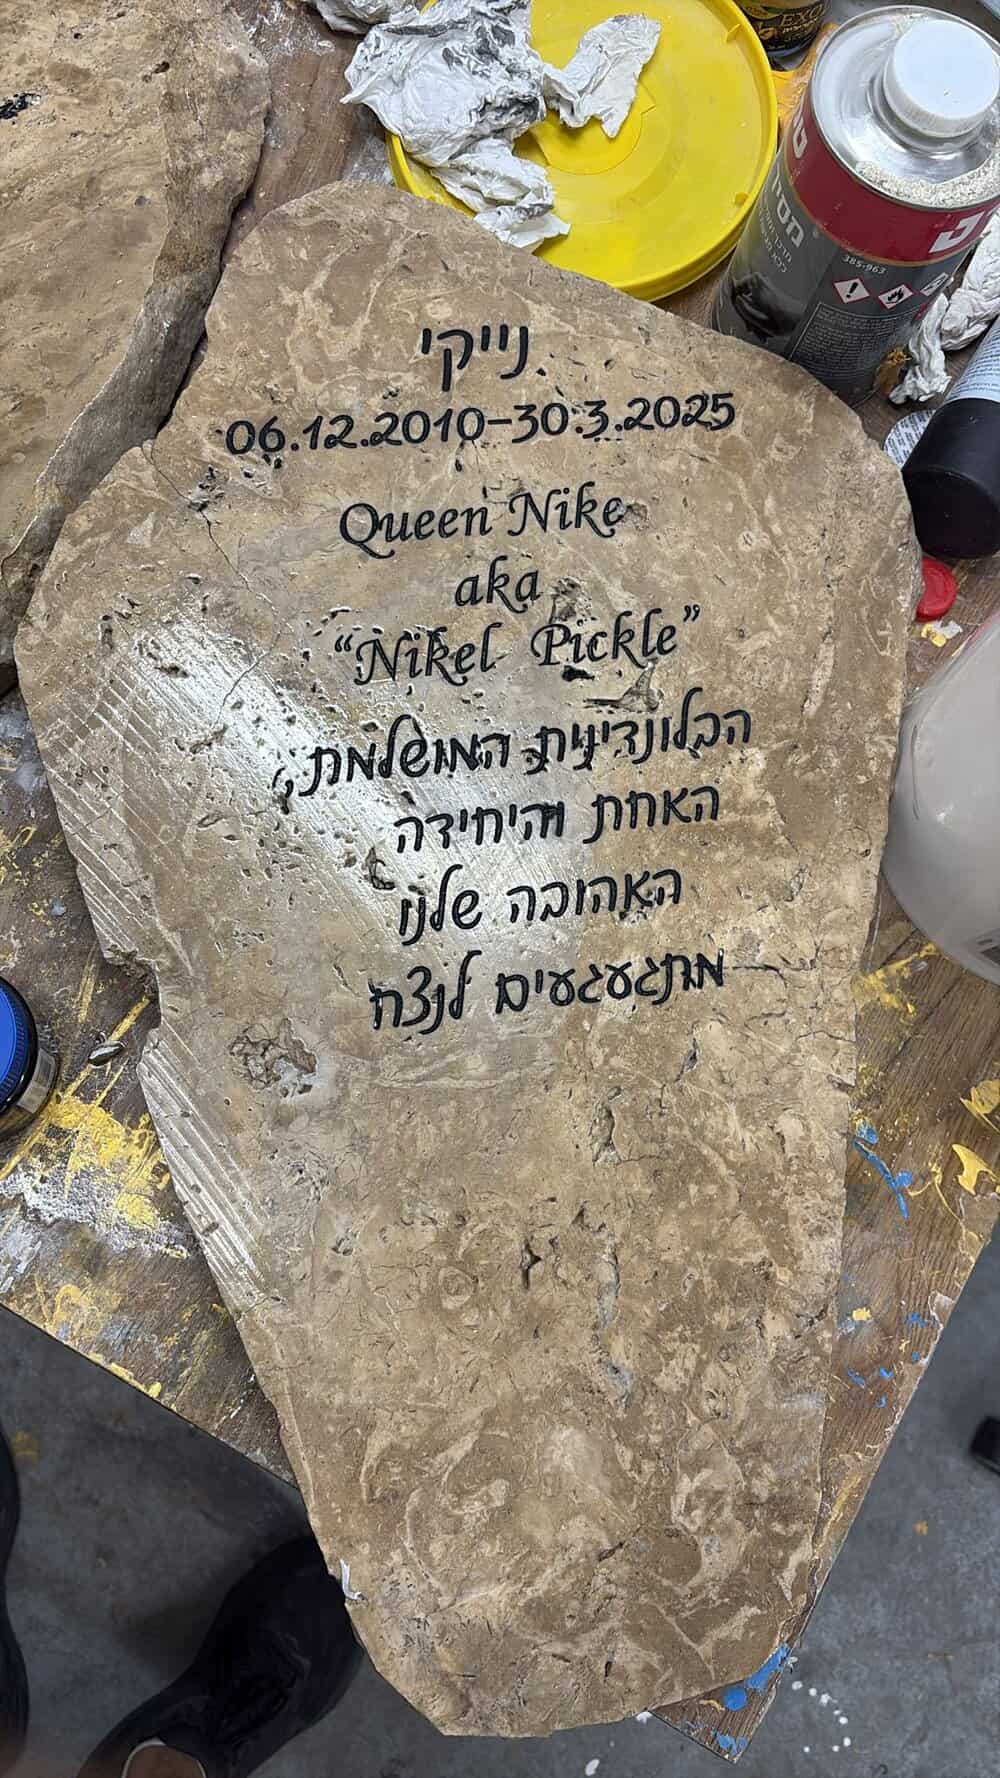 נייקי
06.12.2010-30.3.2025
Queen Nike
aka
“Nikel Pickle”
הבלונדינית המושלמת,
האחת והיחידה
האהובה שלנו
מתגעגעים לנצח
385-963